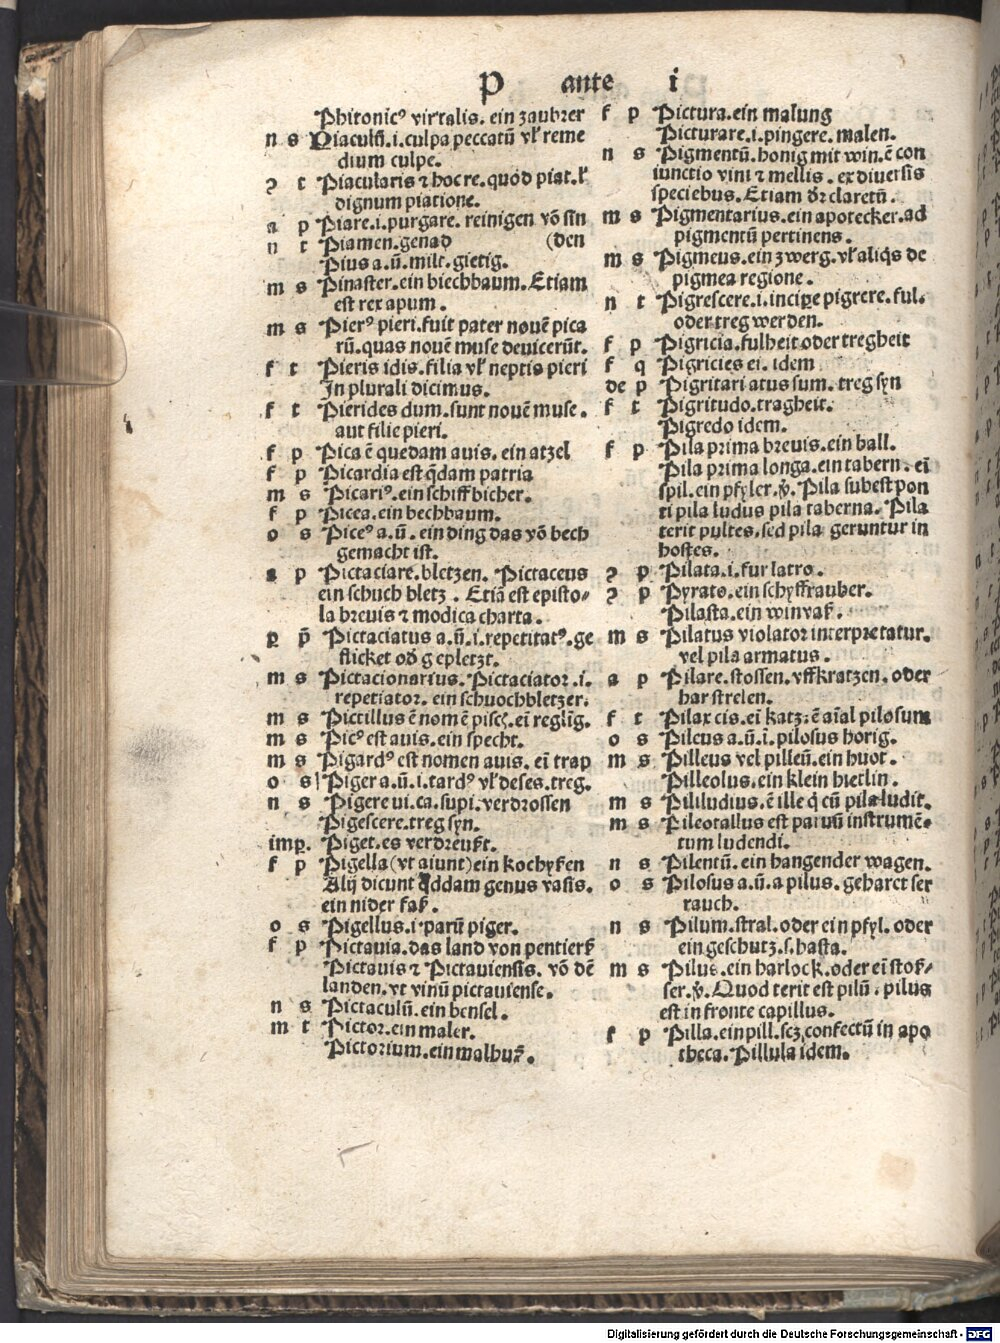 P ante i
Phitonicꝰ virtalis. ein zaubrer
n s Piaculū.i.culpa peccatū vl̓ reme
dium culpe.
ꝫ t Piacularis ⁊ hoc re.quod piat.l̓
dignum piatione.
a p Piare.i.purgare. reinigen vō sin
n t Piamen.genad (den
Pius a.ū.milt.gietig.
m s Pinaster.ein biechbaum.Etiam
est rex apum.
m s Pierꝰ pieri.fuit pater nouē pica
rū.quas nouē muse deuicerūt.
f t Pieris idis.filia vl̓ neptis pieri
In plurali dicimus.
f t Pierides dum.sunt nouē muse.
aut filie pieri.
f p Pica ē quedam auis.ein atzel
f p Picardia est q̄dam patria
m s Picariꝰ.ein schiffbicher.
f p Picea.ein bechbaum.
o s Piceꝰ a.ū.ein ding das vō bech
gemacht ist.
a p Pictaciare.bletzen. Pictaceus
ein schuch bletz. Etiā est episto-
la breuis ⁊ modica charta.
p̱ p̄ Pictaciatus a.ū.i.repetitatꝰ.ge
flicket od̓ gepletzt.
m s Pictacionarius. Pictaciator.i.
repetiator. ein schuochbletzer.
m s Pictillus ē nomē pisc̄.eī reglīg.
m s Picꝰ est auis.ein specht.
m s Pigardꝰ est nomen auis. eī trap
o s Piger a.ū.i.tardꝰ vl̓ deses.treg.
n s Pigere ui.ca.supi.verdrossen
Pigescere.treg syn.
imp̱. Piget.es verdreußt.
f p Pigella (vt aiunt) ein kochyfen
Alij dicunt q̄ddam genus vasis.
ein nider faß.
o s Pigellus.i.parū piger.
f p Pictauia.das land von pentierß
Pictauis ⁊ Pictauiensis. vō dē
landen.vt vinū pictauiense.
n s Pictaculū.ein bensel.
m t Pictor.ein maler.
Pictorium.ein malhuß.
f p Pictura.ein malung
Picturare.i.pingere.malen.
n s Pigmentū.honig mit win.ē con
iunctio vini ⁊ mellis. ex diuersis
speciebus.Etiam dr̄ claretū.
m s Pigmentarius.ein apotecker.ad
pigmentū pertinens.
m s Pigmeus.ein zwerg.vl̓ aliq̇s de
pigmea regione.
n t Pigrescere.i.incipe pigrere.ful.
oder treg werden.
f p Pigricia.fulheit oder tregheit
f q Pigricies ei. idem
de p Pigritari atus sum. treg syn
f t Pigritudo.tragheit.
Pigredo idem.
f p Pila prima breuis.ein ball.
Pila prima longa.ein tabern.eī
spil.ein pfyler.ṽ. Pila subest pon
ti pila ludus pila taberna. Pila
terit pultes.sed pila geruntur in
hostes.
ꝫ p Pilata.i.fur latro.
ꝫ p Pyrate.ein schyffrauber.
Pilasta.ein winvaß.
m s Pilatus violator interpretatur.
vel pila armatus.
a p Pilare.stossen.vffkratzen.oder
har strelen.
f t Pilax cis.eī katz.ē aīal pilosum
o s Pileus a.ū.ī.pilosus horig.
m s Pilleus vel pilleū.ein huot.
Pilleolus.ein klein hietlin.
m s Pililudius.ē ille q̇ cū pila ludit.
m s Pileotallus est paruū instrumē-
tum ludendi.
n s Pilentū.ein hangender wagen.
o s Pilosus a.ū.a pilus.geharet ser
rauch.
n s Pilum.stral.oder ein pfyl.oder
ein geschutz.s.hasta.
m s Pilus.ein harlock.oder eī stoß-
ser.ṽ.Quod terit est pilū.pilus
est in fronte capillus.
f p Pilla.ein pill.scꝫ confectū in apo
theca.Pillula idem.
Digitalisierung gefördert durch die Deutsche Forschungsgemeinschaft - DFG